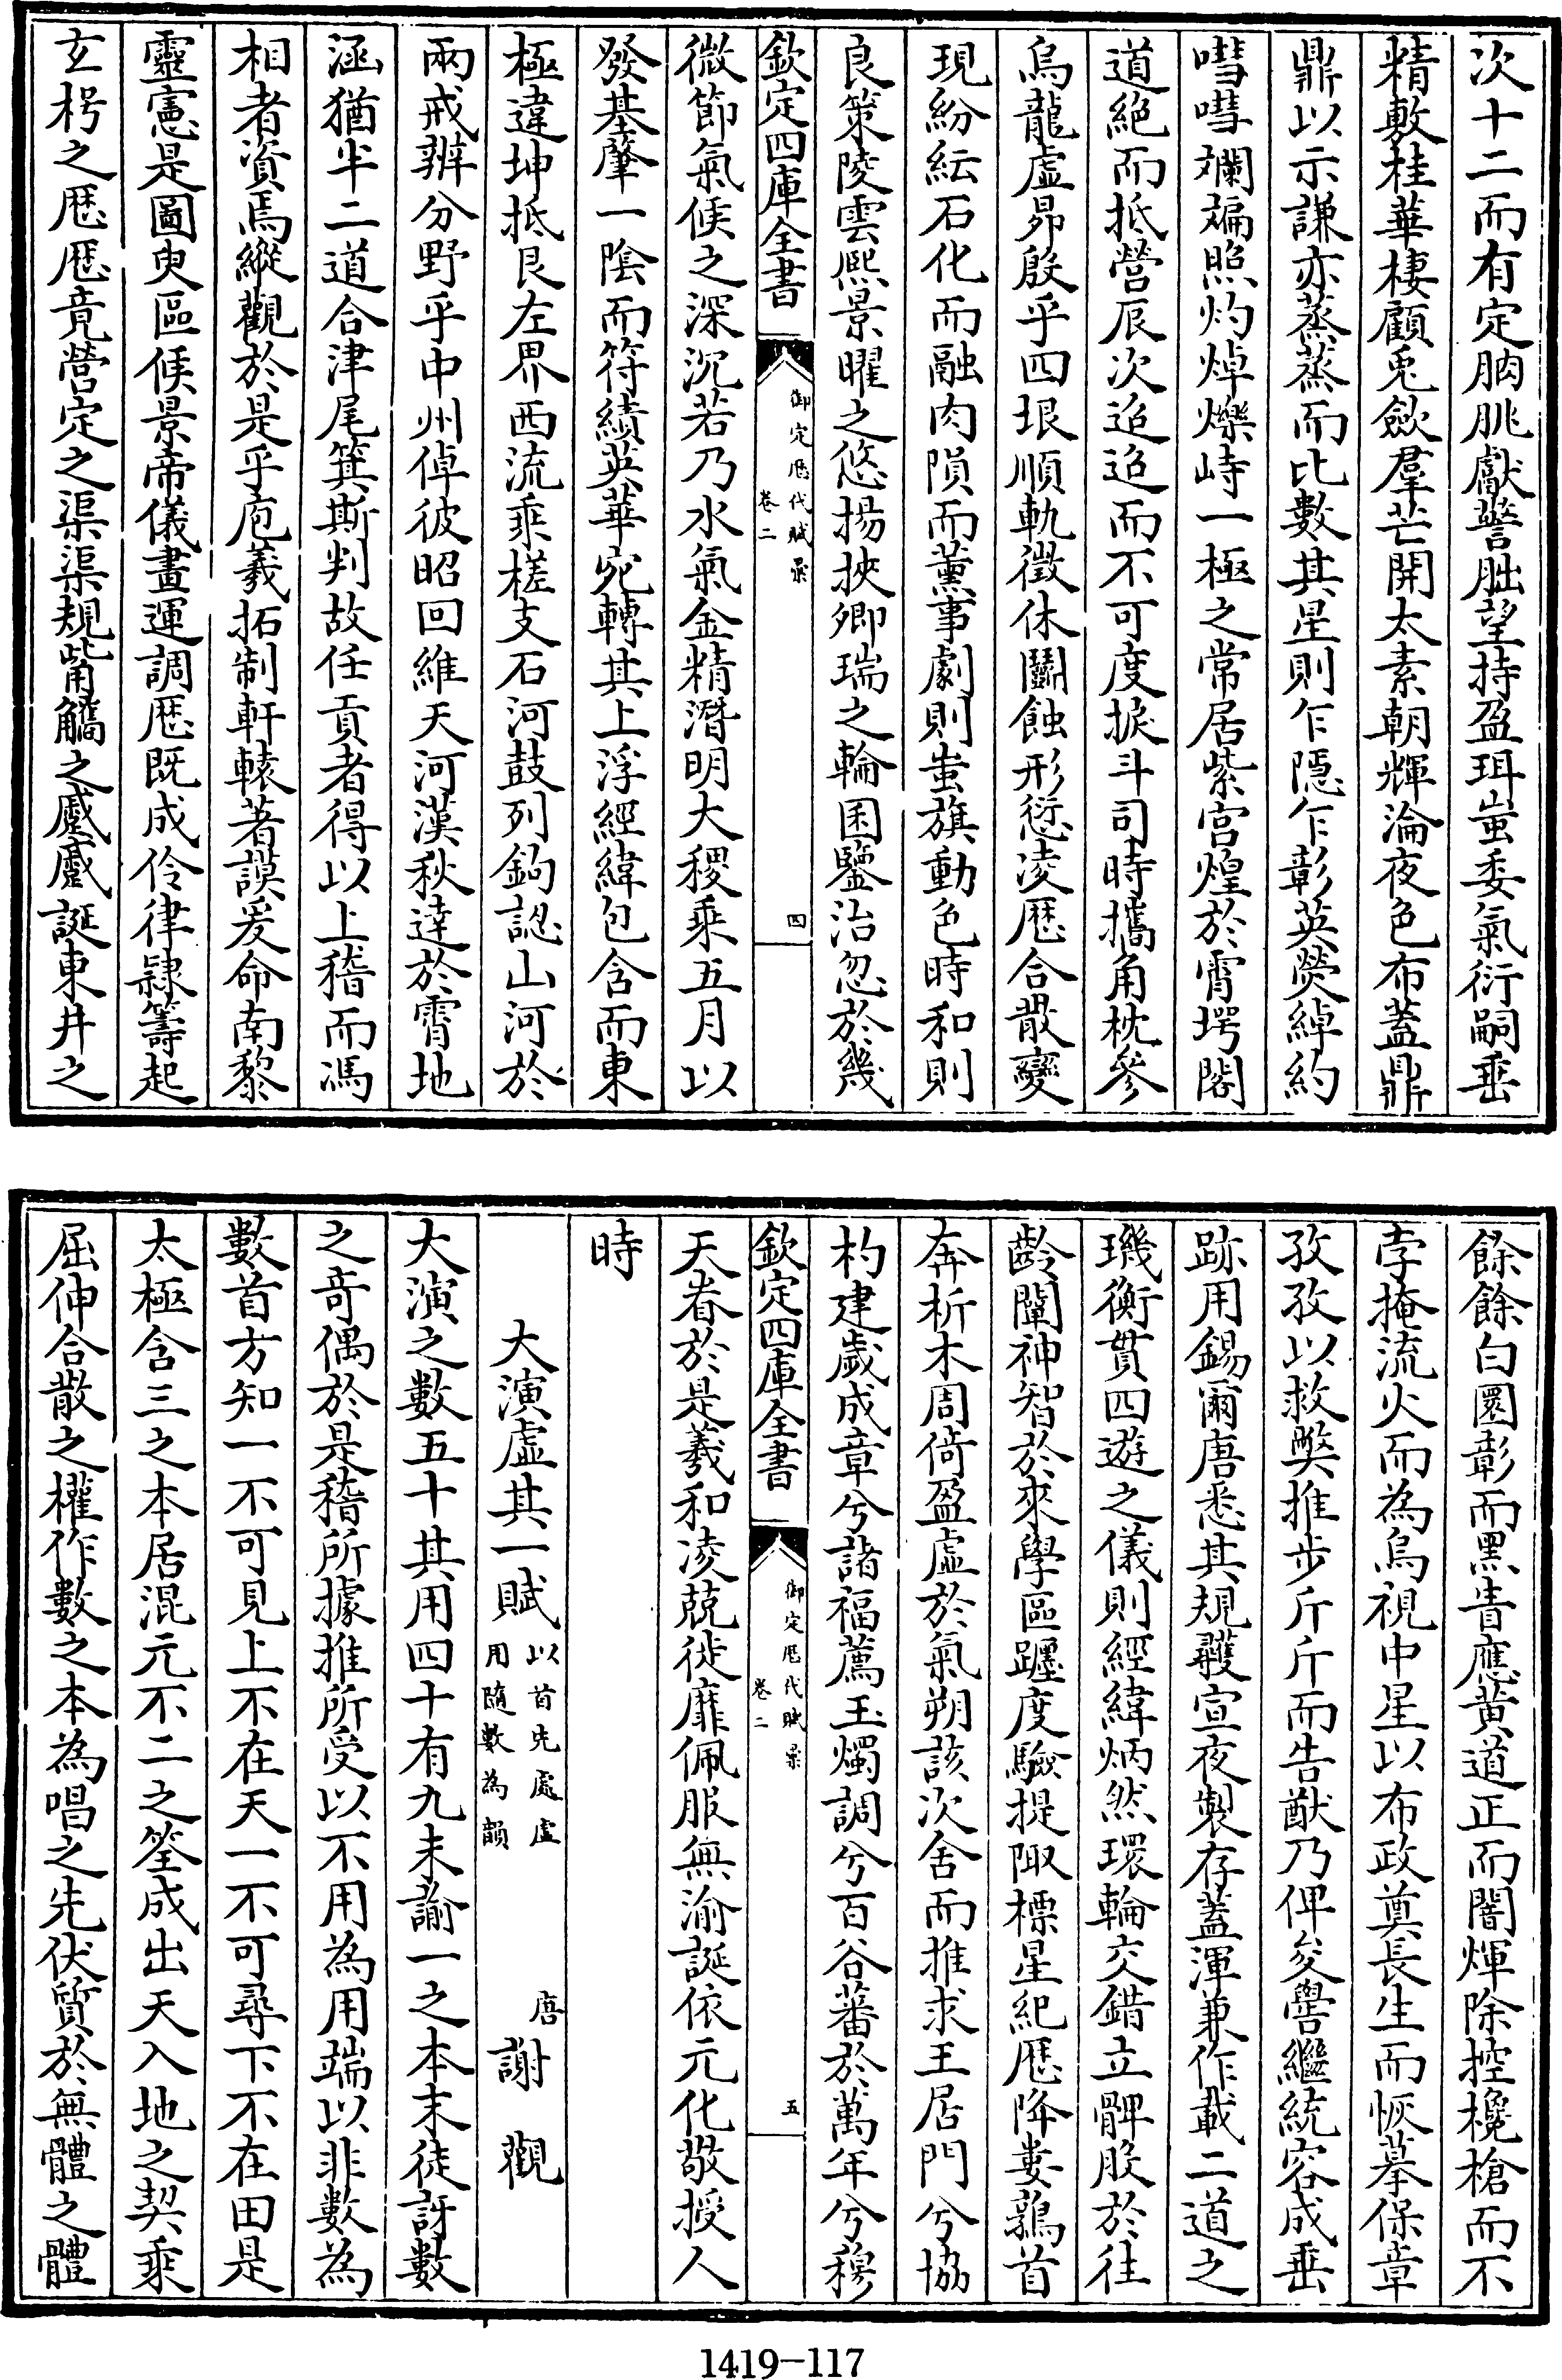 次十二而有定朒朓獻警朏望持盈珥蚩委氣衍嗣垂
精敷桂華棲顧兎斂羣芒開太素朝輝淪夜色布葢鼎
鼎以示謙亦蒸蒸而比數其星則乍隱乍彰英熒綽約
嘒嘒斕斒照灼焯爍峙一極之常居紫宫煌於霄堮閣
道絶而抵營辰次迢迢而不可度捩斗司時攜角枕參
烏龍虛昴殷乎四垠順軌徵休鬭蝕形愆凌歴合散變
現紛紜石化而融肉隕而薫事劇則蚩旗動色時和則
良策陵雲熙景曜之悠揚挾卿瑞之輪囷鑒治忽於幾
欽定四庫全書
御定歴代賦彚
卷二
四
微節氣候之深沉若乃水氣金精潛明大稷乘五月以
發基肇一陰而符績英華宛轉其上浮經緯包含而東
極違坤抵艮左界西流乘槎支石河鼓列鉤認山河於
兩戒辨分野乎中州倬彼昭回維天河漢秋達於霄地
涵猶半二道合津尾箕斯判故任貢者得以上稽而馮
相者資焉縱觀於是乎庖羲拓制軒轅著謨爰命南黎
靈憲是圖臾區候景帝儀畫運調歴既成伶律隸籌起
玄枵之歴歴竟營定之渠渠規觜觿之蹙蹙誕東井之
餘餘白圜彰而黒眚應黄道正而闇煇除控欃槍而不
孛掩流火而為烏視中星以布政奠長生而恢摹保章
孜孜以救獘推步斤斤而告猷乃俾夋嚳繼統容成垂
跡用錫爾唐悉其規䕶宣夜製存葢渾兼作載二道之
璣衡貫四遊之儀則經緯炳然環輪交錯立髀股於往
齡闡神智於來學區躔度驗提陬標星紀歴降婁鶉首
奔析木周倚盈虛於氣朔該次舍而推求王居門兮協
杓建歲成章兮諧福薦玉燭調兮百谷蕃於萬年兮穆
欽定四庫全書
御定歴代賦彚
卷二
五
天眷於是羲和凌兢徙靡佩服無渝誕依元化敬授人
時
大演虛其一賦 以首先處虛
用隨數為韻 唐 謝觀
大演之數五十其用四十有九未諭一之本末徒訝數
之奇偶於是稽所據推所受以不用為用端以非數為
數首方知一不可見上不在天一不可尋下不在田是
太極含三之本居混元不二之筌成出天入地之契乘
屈伸合散之權作數之本為唱之先伏質於無體之體
1419-117